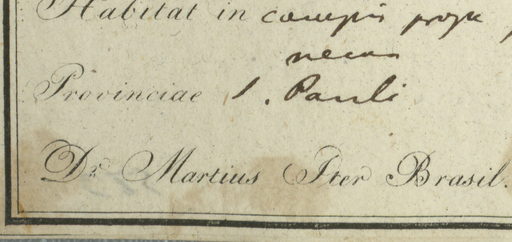 Habitat in campis prope
Provinciae S. Pauli
Dr. Martius Iter Brasil.